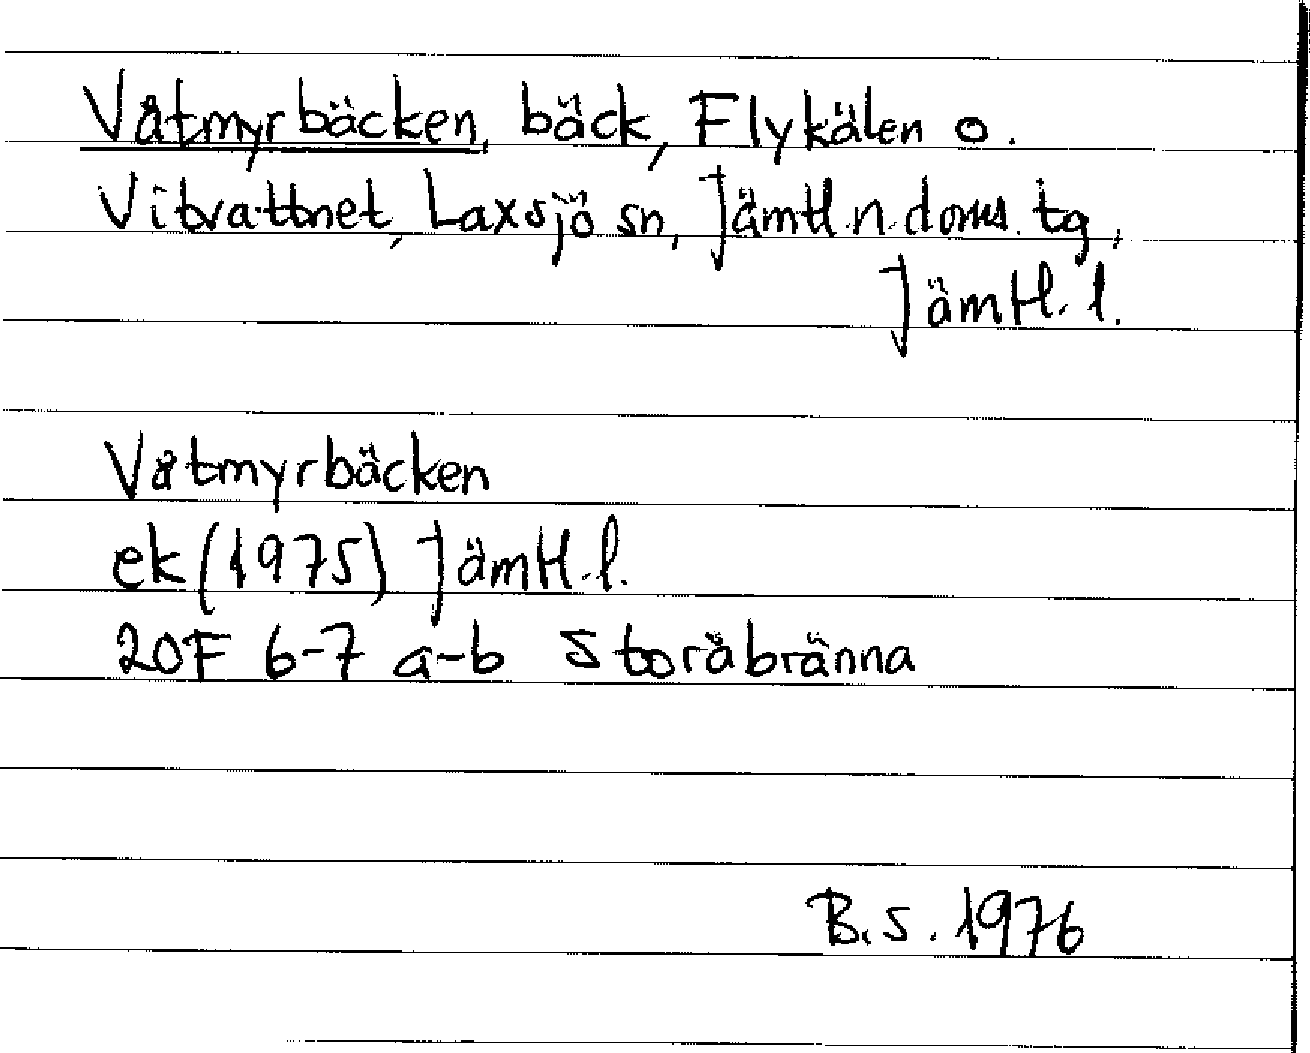 Våtmyrbäcken, bäck, Flykälen o.
Vitvattnet, Laxsjö sn, Jämtl. n. doms. tg,
Jämtl. l.
Våtmyrbäcken
ek (1975) Jämtl. l.
20F 6-7 a-b Storåbränna
B.S. 1976